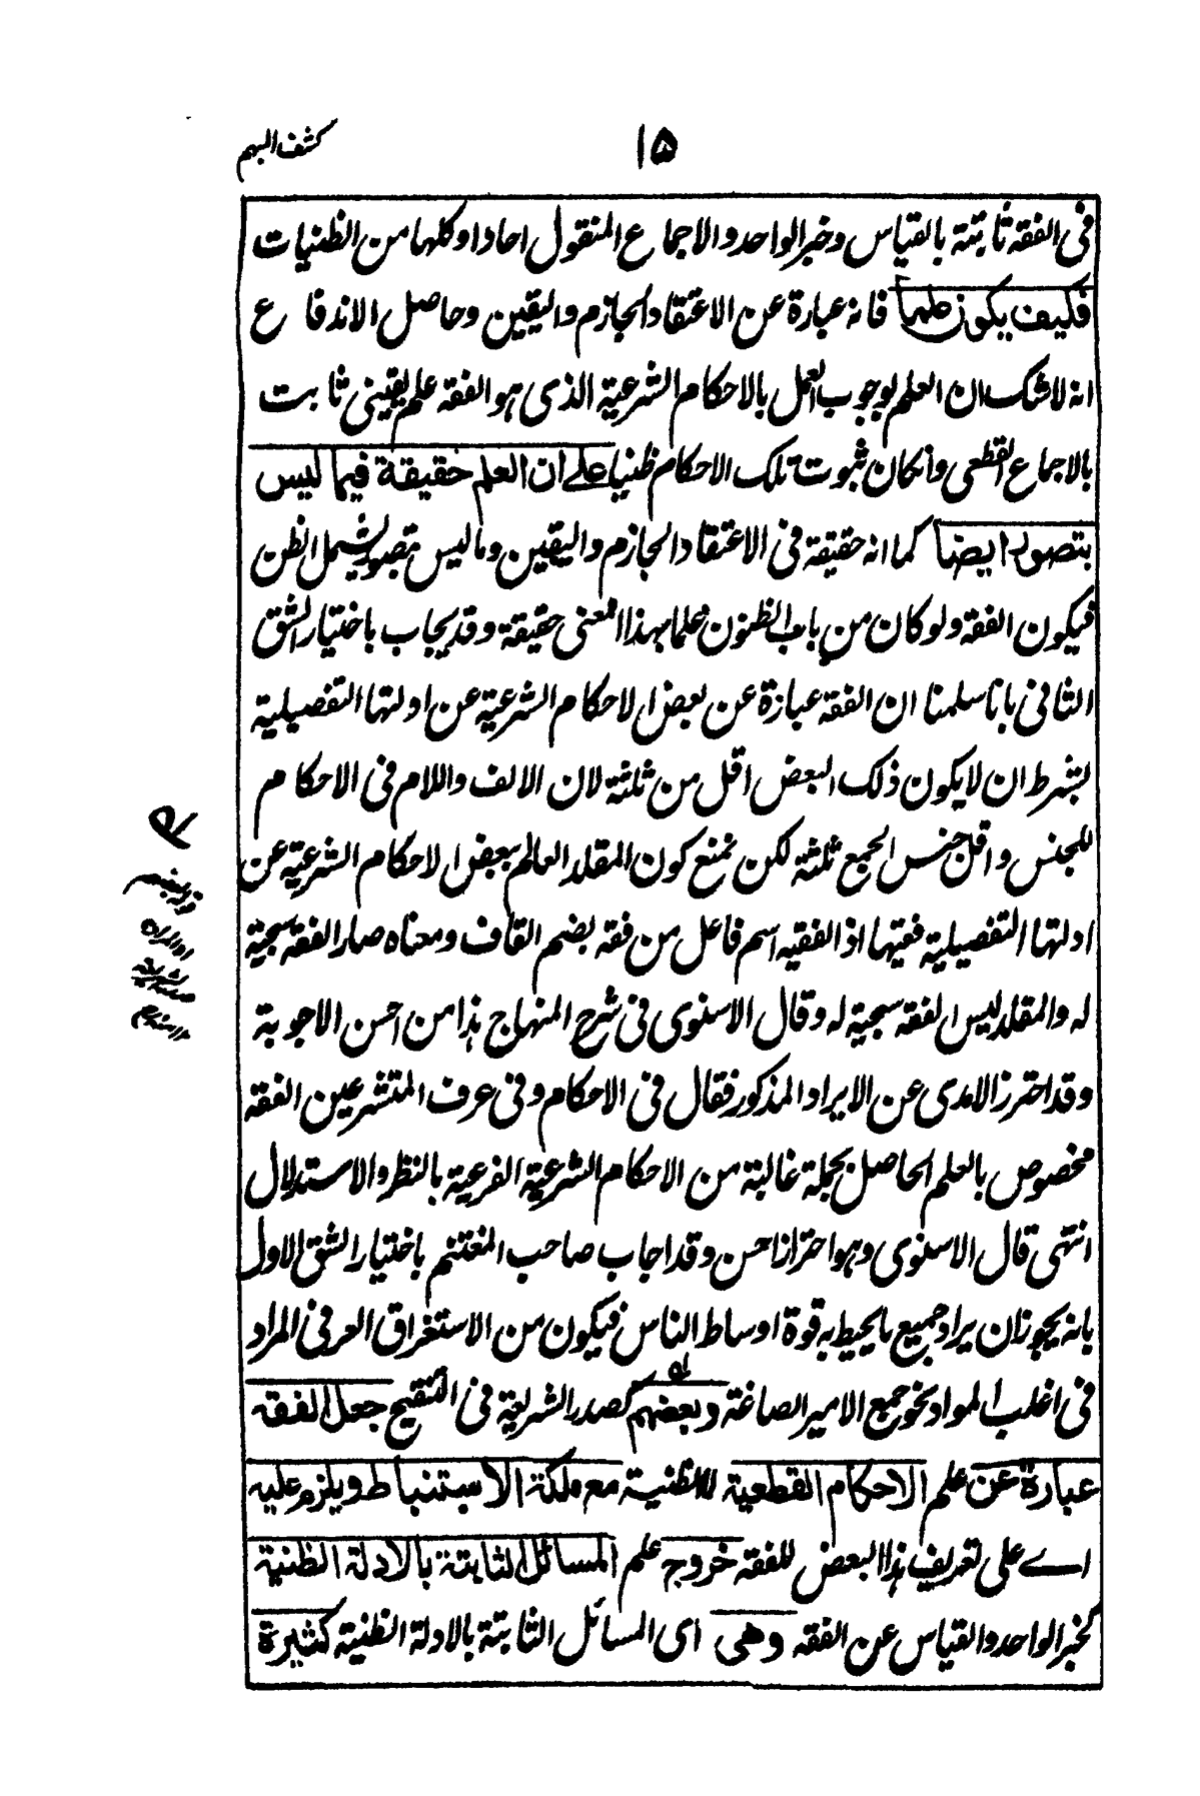 ۱۵
كشف المبهم
فى الفقه ثابتة بالقياس وخبر الواحد والاجماع المنقول احادا وكلها من الظنيات
فكيف يكون علما فانه عبارة عن الاعتقاد الجازم واليقين وحاصل الاندفاع
انه لا شك ان العلم بوجوب العمل بالاحكام الشرعية الذى هو الفقه علم يقينى ثابت
بالاجماع القطعى وانكان ثبوت تلك الاحكام ظنيا على ان العلم حقيقة فيما ليس
بتصور ايضا كما انه حقيقة فى الاعتقاد الجازم واليقين وما ليس بتصور يشمل الظن
فيكون الفقه ولو كان من باب الظنون علما بهذا المعنى حقيقة وقد يجاب باختيار الشق
الثانى بانا سلمنا ان الفقه عبارة عن بعض الاحكام الشرعية عن ادلتها التفصيلية
بشرط ان لا يكون ذلك البعض اقل من ثلثة لان الالف واللام فى الاحكام
للجنس واقل جنس الجمع ثلثة لكن نمنع كون المقلد العالم ببعض الاحكام الشرعية عن
ادلتها التفصيلية فقيها اذ الفقيه اسم فاعل من فقه بضم القاف ومعناه صار الفقه سجية
له والمقلد ليس الفقه سجية له وقال الاسنوى فى شرح المنهاج هذا من احسن الاجوبة
وقد احترز الامدى عن الايراد المذكور فقال فى الاحكام وفى عرف المتشرعين الفقه
مخصوص بالعلم الحاصل بجملة غالبة من الاحكام الشرعية الفرعية بالنظر والاستدلال
انتهى قال الاسنوى وهو احتراز احسن وقد اجاب صاحب المغتنم باختيار الشق الاول
بانه يجوز ان يراد جميع ما يحيط به قوة اوساط الناس فيكون من الاستغراق العرفى المراد
فى اغلب المواد نحو جمع الامير الصاغة وبعضهم كصدر الشريعة فى التنقيح جعل الفقه
عبارة عن علم الاحكام القطعية للظنية مع ملكة الاستنباط ويلزم عليه
اے على تعريف هذا البعض للفقه خروج علم المسائل الثابتة بالادلة الظنية
كخبر الواحد والقياس عن الفقه وهى اى المسائل الثابتة بالادلة الظنية كثيرة